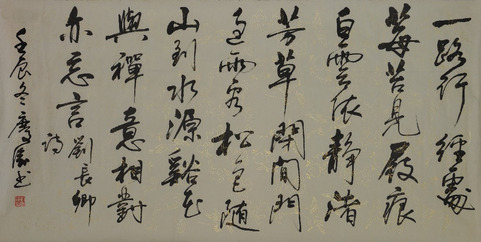 一路行經處
莓苔見屐痕
白雲依靜渚
芳草閉閒門
過雨看松色隨
山到水源谿花
與禪意相對
亦忘言 劉長卿
詩
壬辰冬慶書